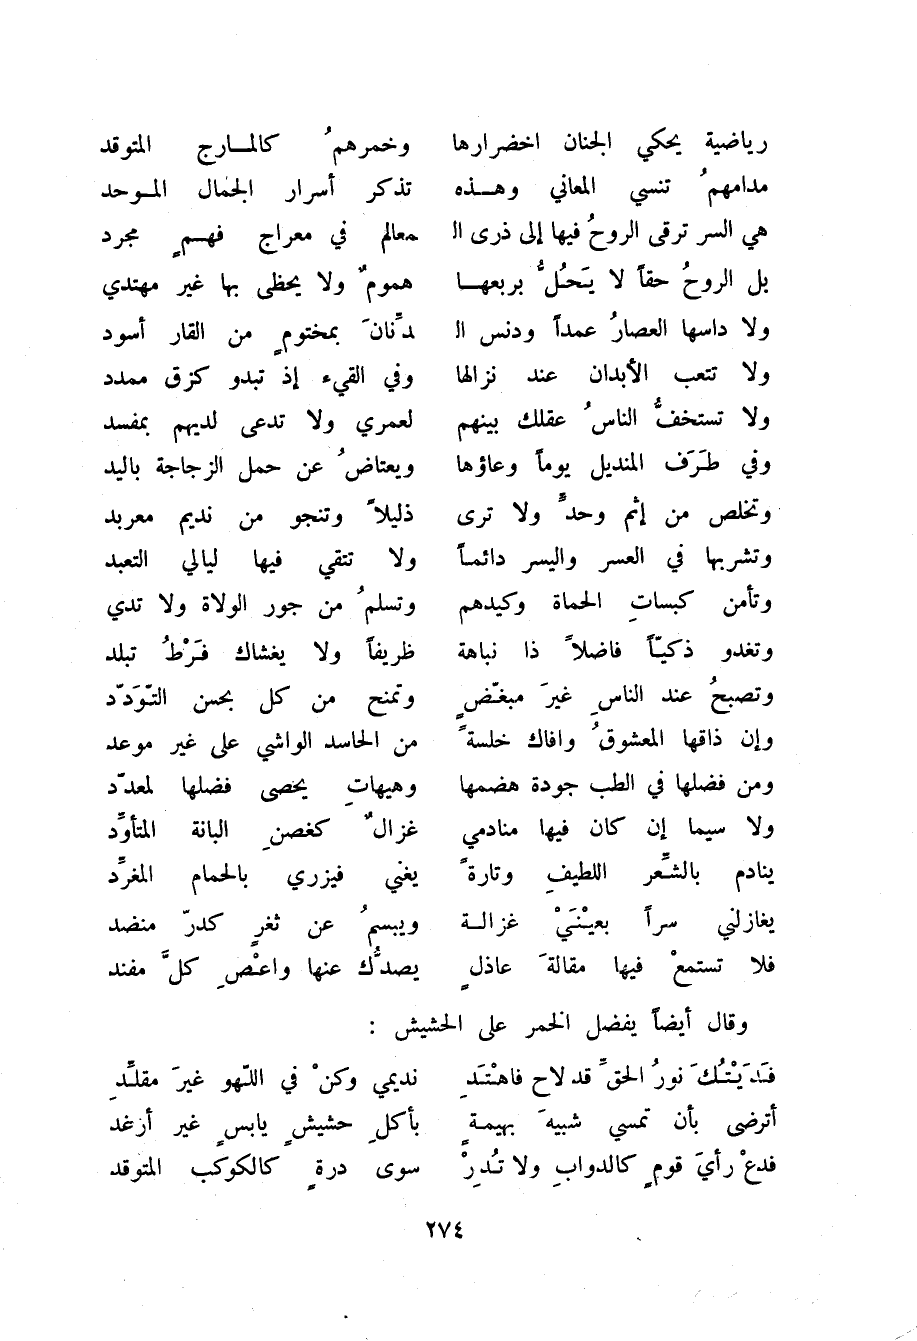 رياضية يحكي الجنان اخضرارها وخمرهمُ كالمـارج المتوقد
مدامهمُ تنسي المعاني وهـذه تذكر أسرار الجمال الموحد
هي السر ترقى الروحُ فيها إلى ذرى الـ ـمعالم في معراج فهـمٍ مجرد
بل الروحُ حقاً لا يَحُلُّ بربعهـا همومٌ ولا يحظى بها غير مهتدي
ولا داسها العصارُ عمداً ودنس الـ ـدِّنانَ بمختومٍ من القار أسود
ولا تتعب الأبدان عند نزالها وفي القيء إذ تبدو كزق ممدد
ولا تستخفُّ الناسُ عقلك بينهم لعمري ولا تدعى لديهم بمفسد
وفي طَرَف المنديل يوماً وعاؤها ويعتاضُ عن حمل الزجاجة باليد
وتخلص من إثم وحدٍّ ولا ترى ذليلاً وتنجو من نديم معربد
وتشربها في العسر واليسر دائمـاً ولا تتقي فيها ليالي التعبد
وتأمن كبساتِ الحماة وكيدهم وتسلمُ من جور الولاة ولا تدي
وتغدو ذكيـّاً فاضلاً ذا نباهة ظريفاً ولا يغشاك فَرْطُ تبلد
وتصبحُ عند الناسِ غيرَ مبغّضٍ وتمنح من كل بحسن التّوَدّد
وإن ذاقها المعشوقُ وافاك خلسةً من الحاسد الواشي على غير موعد
ومن فضلها في الطب جودة هضمها وهيهاتِ يحصى فضلها لمعدّد
ولا سيما إن كان فيها منادمي غزالٌ كغصنِ البانة المتأوِّد
ينادم بالشِّعر اللطيفِ وتارةً يغني فيزري بالحمام المغرِّد
يغازلني سراً بعيْنَيْ غزالـة ويبسمُ عن ثغرٍ كدرّ منضد
فلا تستمعْ فيها مقالةَ عاذلٍ يصدُّك عنها واعْصِ كلَّ مفند
وقال أيضاً يفضل الخمر على الحشيش :
فَدَيْتُكَ نورُ الحقِّ قد لاح فاهْتَدِ نديمي وكنْ في اللّهو غيرَ مقلِّدِ
أترضى بأن تمسي شبيهَ بهيمةٍ بأكلِ حشيشٍ يابسٍ غير أرغد
فدعْ رأيَ قومٍ كالدوابِ ولا تُدِرْ سوى درةٍ كالكوكب المتوقد
٢٧٤